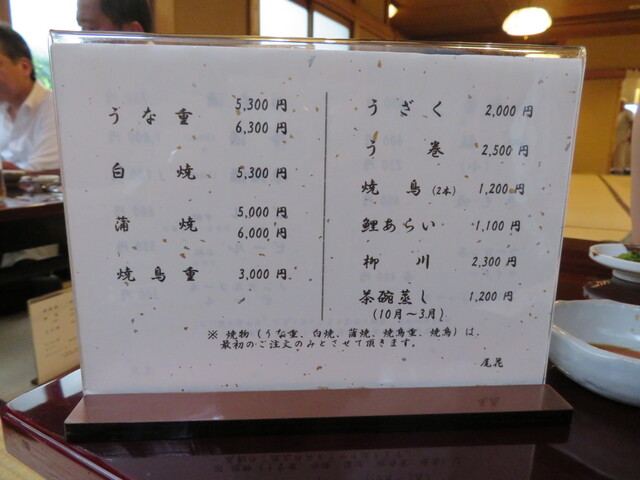 うな重 5,300 円
6,300 円
白焼 5,300 円
蒲焼 5,000 円
6,000 円
焼鳥重 3,000 円
うざく 2,000 円
う巻 2,500 円
焼鳥 (2本) 1,200 円
鯉あらい 1,100 円
柳川 2,300 円
茶碗蒸し 1,200 円
(10月～3月)
※ 焼物 (うな重、白焼、蒲焼、焼鳥重、焼鳥) は、
最初のご注文のみとさせて頂きます。
尾花